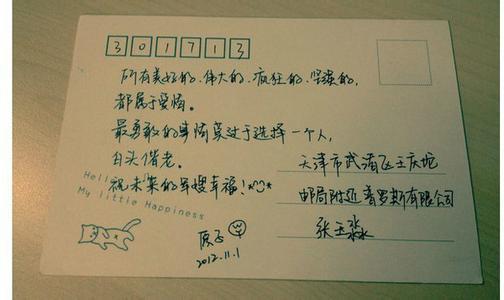 301713
所有美好的、伟大的、疯狂的、坚韧的,
都属于爱情。
最勇敢的事情莫过于选择一个人,
白头偕老。
祝未来的军嫂幸福!
Hello
My little Happiness
天津市武清区王庆坨
邮局附近普罗斯有限公司
张玉淼
原子
2012.11.1